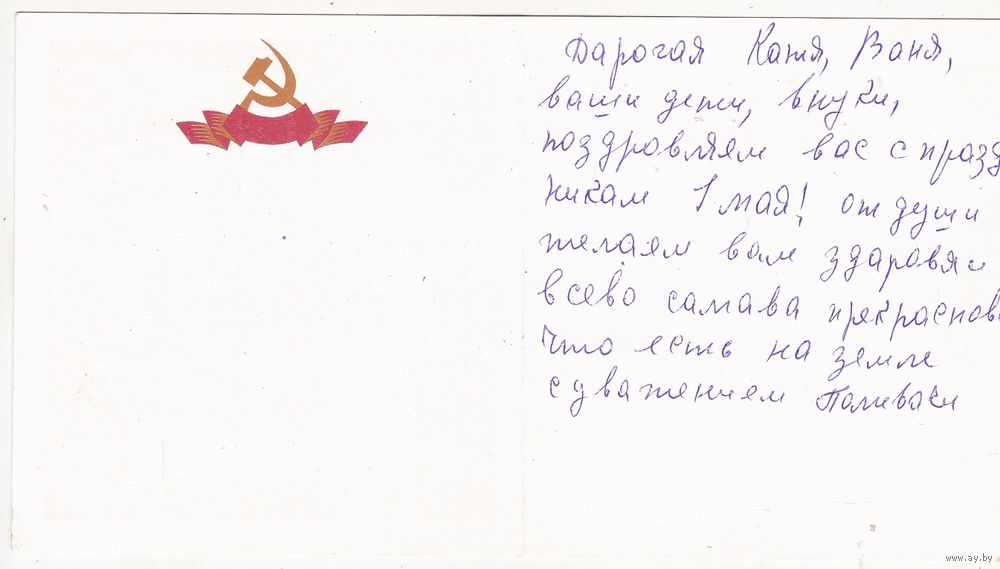 Дарогая Катя, Ваня,
ваши дети, внуки,
поздровляем вас с празд
никам 1 мая! от души
желаям вам здаровя и
всево самава прекраснова
что есть на земле
с уважением Поливаки
www.ay.by